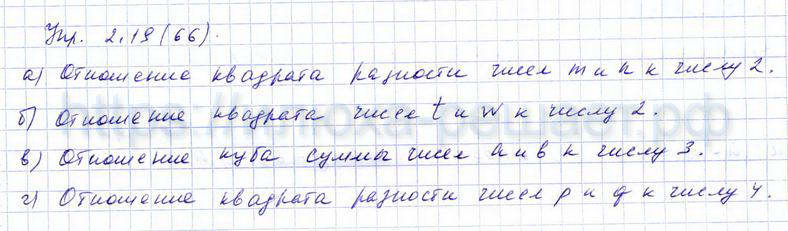 Упр. 2.19 (66).
а) Отношение квадрата разности чисел m и n к числу 2.
б) Отношение квадрата чисел t и w к числу 2.
в) Отношение куба суммы чисел а и в к числу 3.
г) Отношение квадрата разности чисел p и q к числу 4.